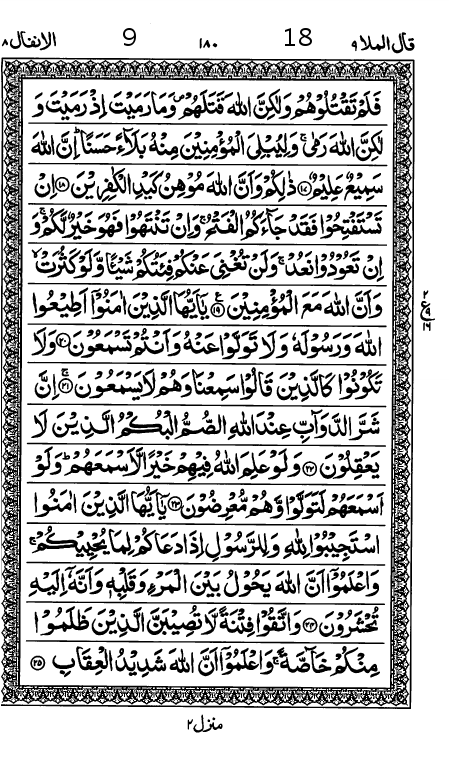 قال الملا ٩ 18 ١٨٠ 9 الانفال ٨
فَلَمْ تَقْتُلُوْهُمْ وَلٰكِنَّ اللّٰهَ قَتَلَهُمْ ۪ وَمَا رَمَيْتَ اِذْ رَمَيْتَ وَ
لٰكِنَّ اللّٰهَ رَمٰى ۚ وَلِيُبْلِيَ الْمُؤْمِنِيْنَ مِنْهُ بَلَآءً حَسَنًا ؕ اِنَّ اللّٰهَ
سَمِيْعٌ عَلِيْمٌ ﴿۱۷﴾ ذٰلِكُمْ وَاَنَّ اللّٰهَ مُوْهِنُ كَيْدِ الْكٰفِرِيْنَ ﴿۱۸﴾ اِنْ
تَسْتَفْتِحُوْا فَقَدْ جَآءَكُمُ الْفَتْحُ ۚ وَاِنْ تَنْتَهُوْا فَهُوَ خَيْرٌ لَّكُمْ ۚ وَ
اِنْ تَعُوْدُوْا نَعُدْ ۚ وَلَنْ تُغْنِيَ عَنْكُمْ فِئَتُكُمْ شَيْـًٔا وَّلَوْ كَثُرَتْ ۙ
وَاَنَّ اللّٰهَ مَعَ الْمُؤْمِنِيْنَ ﴿۱۹﴾ ع يٰۤاَيُّهَا الَّذِيْنَ اٰمَنُوْۤا اَطِيْعُوا
اللّٰهَ وَرَسُوْلَهٗ وَلَا تَوَلَّوْا عَنْهُ وَاَنْتُمْ تَسْمَعُوْنَ ﴿۲۰﴾ وَلَا
تَكُوْنُوْا كَالَّذِيْنَ قَالُوْا سَمِعْنَا وَهُمْ لَا يَسْمَعُوْنَ ﴿۲۱﴾ اِنَّ
شَرَّ الدَّوَآبِّ عِنْدَ اللّٰهِ الصُّمُّ الْبُكْمُ الَّذِيْنَ لَا
يَعْقِلُوْنَ ﴿۲۲﴾ وَلَوْ عَلِمَ اللّٰهُ فِيْهِمْ خَيْرًا لَّاَسْمَعَهُمْ ؕ وَلَوْ
اَسْمَعَهُمْ لَتَوَلَّوْا وَّهُمْ مُّعْرِضُوْنَ ﴿۲۳﴾ يٰۤاَيُّهَا الَّذِيْنَ اٰمَنُوا
اسْتَجِيْبُوْا لِلّٰهِ وَلِلرَّسُوْلِ اِذَا دَعَاكُمْ لِمَا يُحْيِيْكُمْ ۚ
وَاعْلَمُوْۤا اَنَّ اللّٰهَ يَحُوْلُ بَيْنَ الْمَرْءِ وَقَلْبِهٖ وَاَنَّهٗۤ اِلَيْهِ
تُحْشَرُوْنَ ﴿۲۴﴾ وَاتَّقُوْا فِتْنَةً لَّا تُصِيْبَنَّ الَّذِيْنَ ظَلَمُوْا
مِنْكُمْ خَآصَّةً ۚ وَاعْلَمُوْۤا اَنَّ اللّٰهَ شَدِيْدُ الْعِقَابِ ﴿۲۵﴾
۲
ع ۹
۱۶
منزل ۲